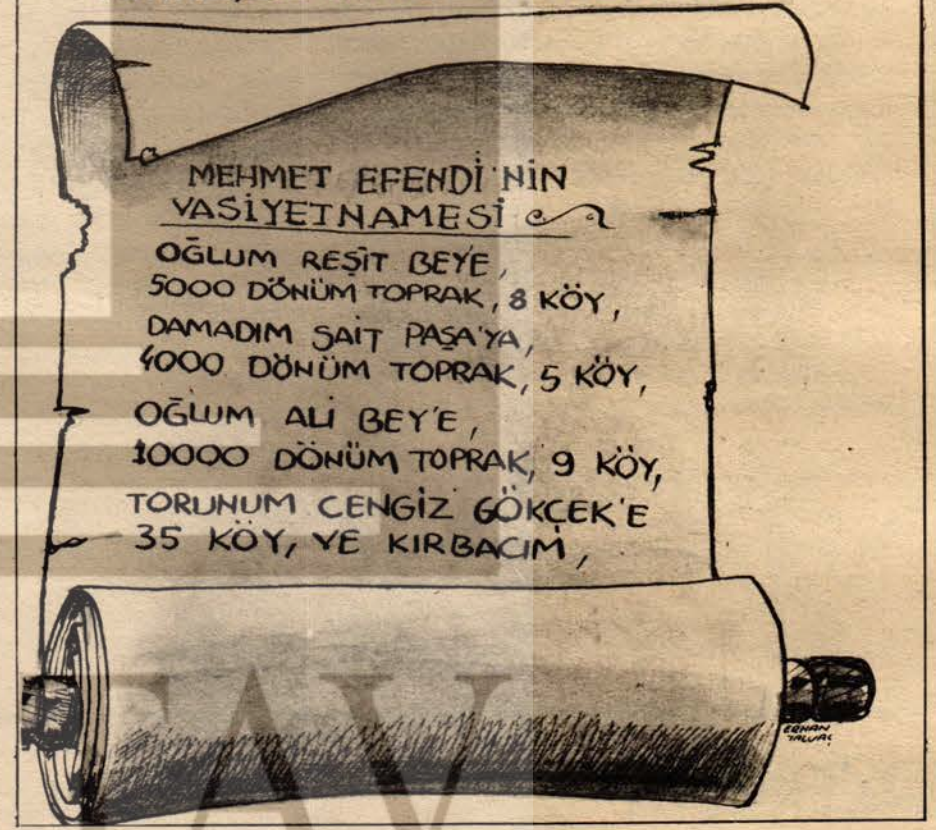 MEHMET EFENDİ'NİN
VASİYETNAMESİ
OĞLUM REŞİT BEYE,
5000 DÖNÜM TOPRAK, 8 KÖY,
DAMADIM SAİT PAŞA'YA,
4000 DÖNÜM TOPRAK, 5 KÖY,
OĞLUM ALİ BEY'E,
10000 DÖNÜM TOPRAK, 9 KÖY,
TORUNUM CENGİZ GÖKÇEK'E
35 KÖY, VE KIRBACIM,
TAV